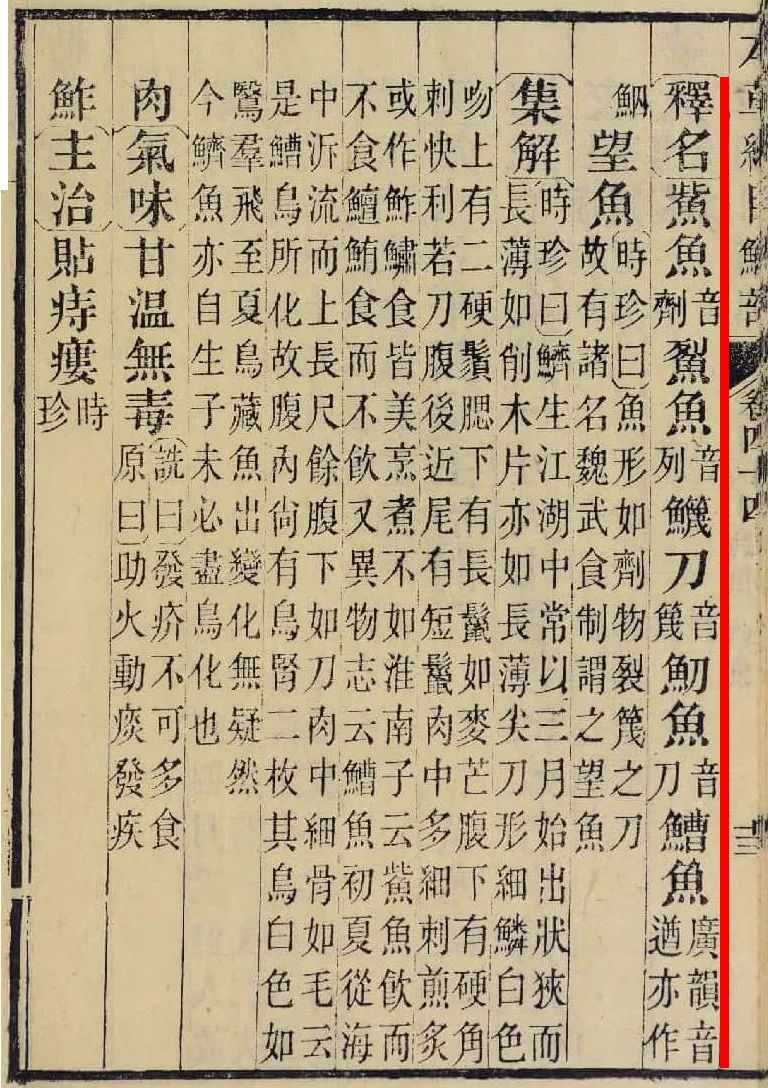 草綱目鱗部 卷四十四
釋名鮆魚音劑鮤魚音列鱴刀音篾魛魚音刀鰽魚廣韻音遒亦作
鮂望魚時珍曰魚形如劑物裂篾之刀
故有諸名魏武食制謂之望魚
集解時珍曰鱭生江湖中常以三月始出狀狹而
長薄如削木片亦如長薄尖刀形細鱗白色
吻上有二硬鬚腮下有長鬣如麥芒腹下有硬角
刺快利若刀腹後近尾有短鬣肉中多細刺煎炙
或作鮓鱐食皆美烹煮不如淮南子云鮆魚飲而
不食鱣鮪食而不飲又異物志云鰽魚初夏從海
中泝流而上長尺餘腹下如刀肉中細骨如毛云
是鰽鳥所化故腹內尚有鳥腎二枚其鳥白色如
鷖羣飛至夏鳥藏魚出變化無疑然
今鱭魚亦自生子未必盡鳥化也
肉氣味甘溫無毒詵曰發疥不可多食
原曰助火動痰發疾
鮓主治貼痔瘻時珍